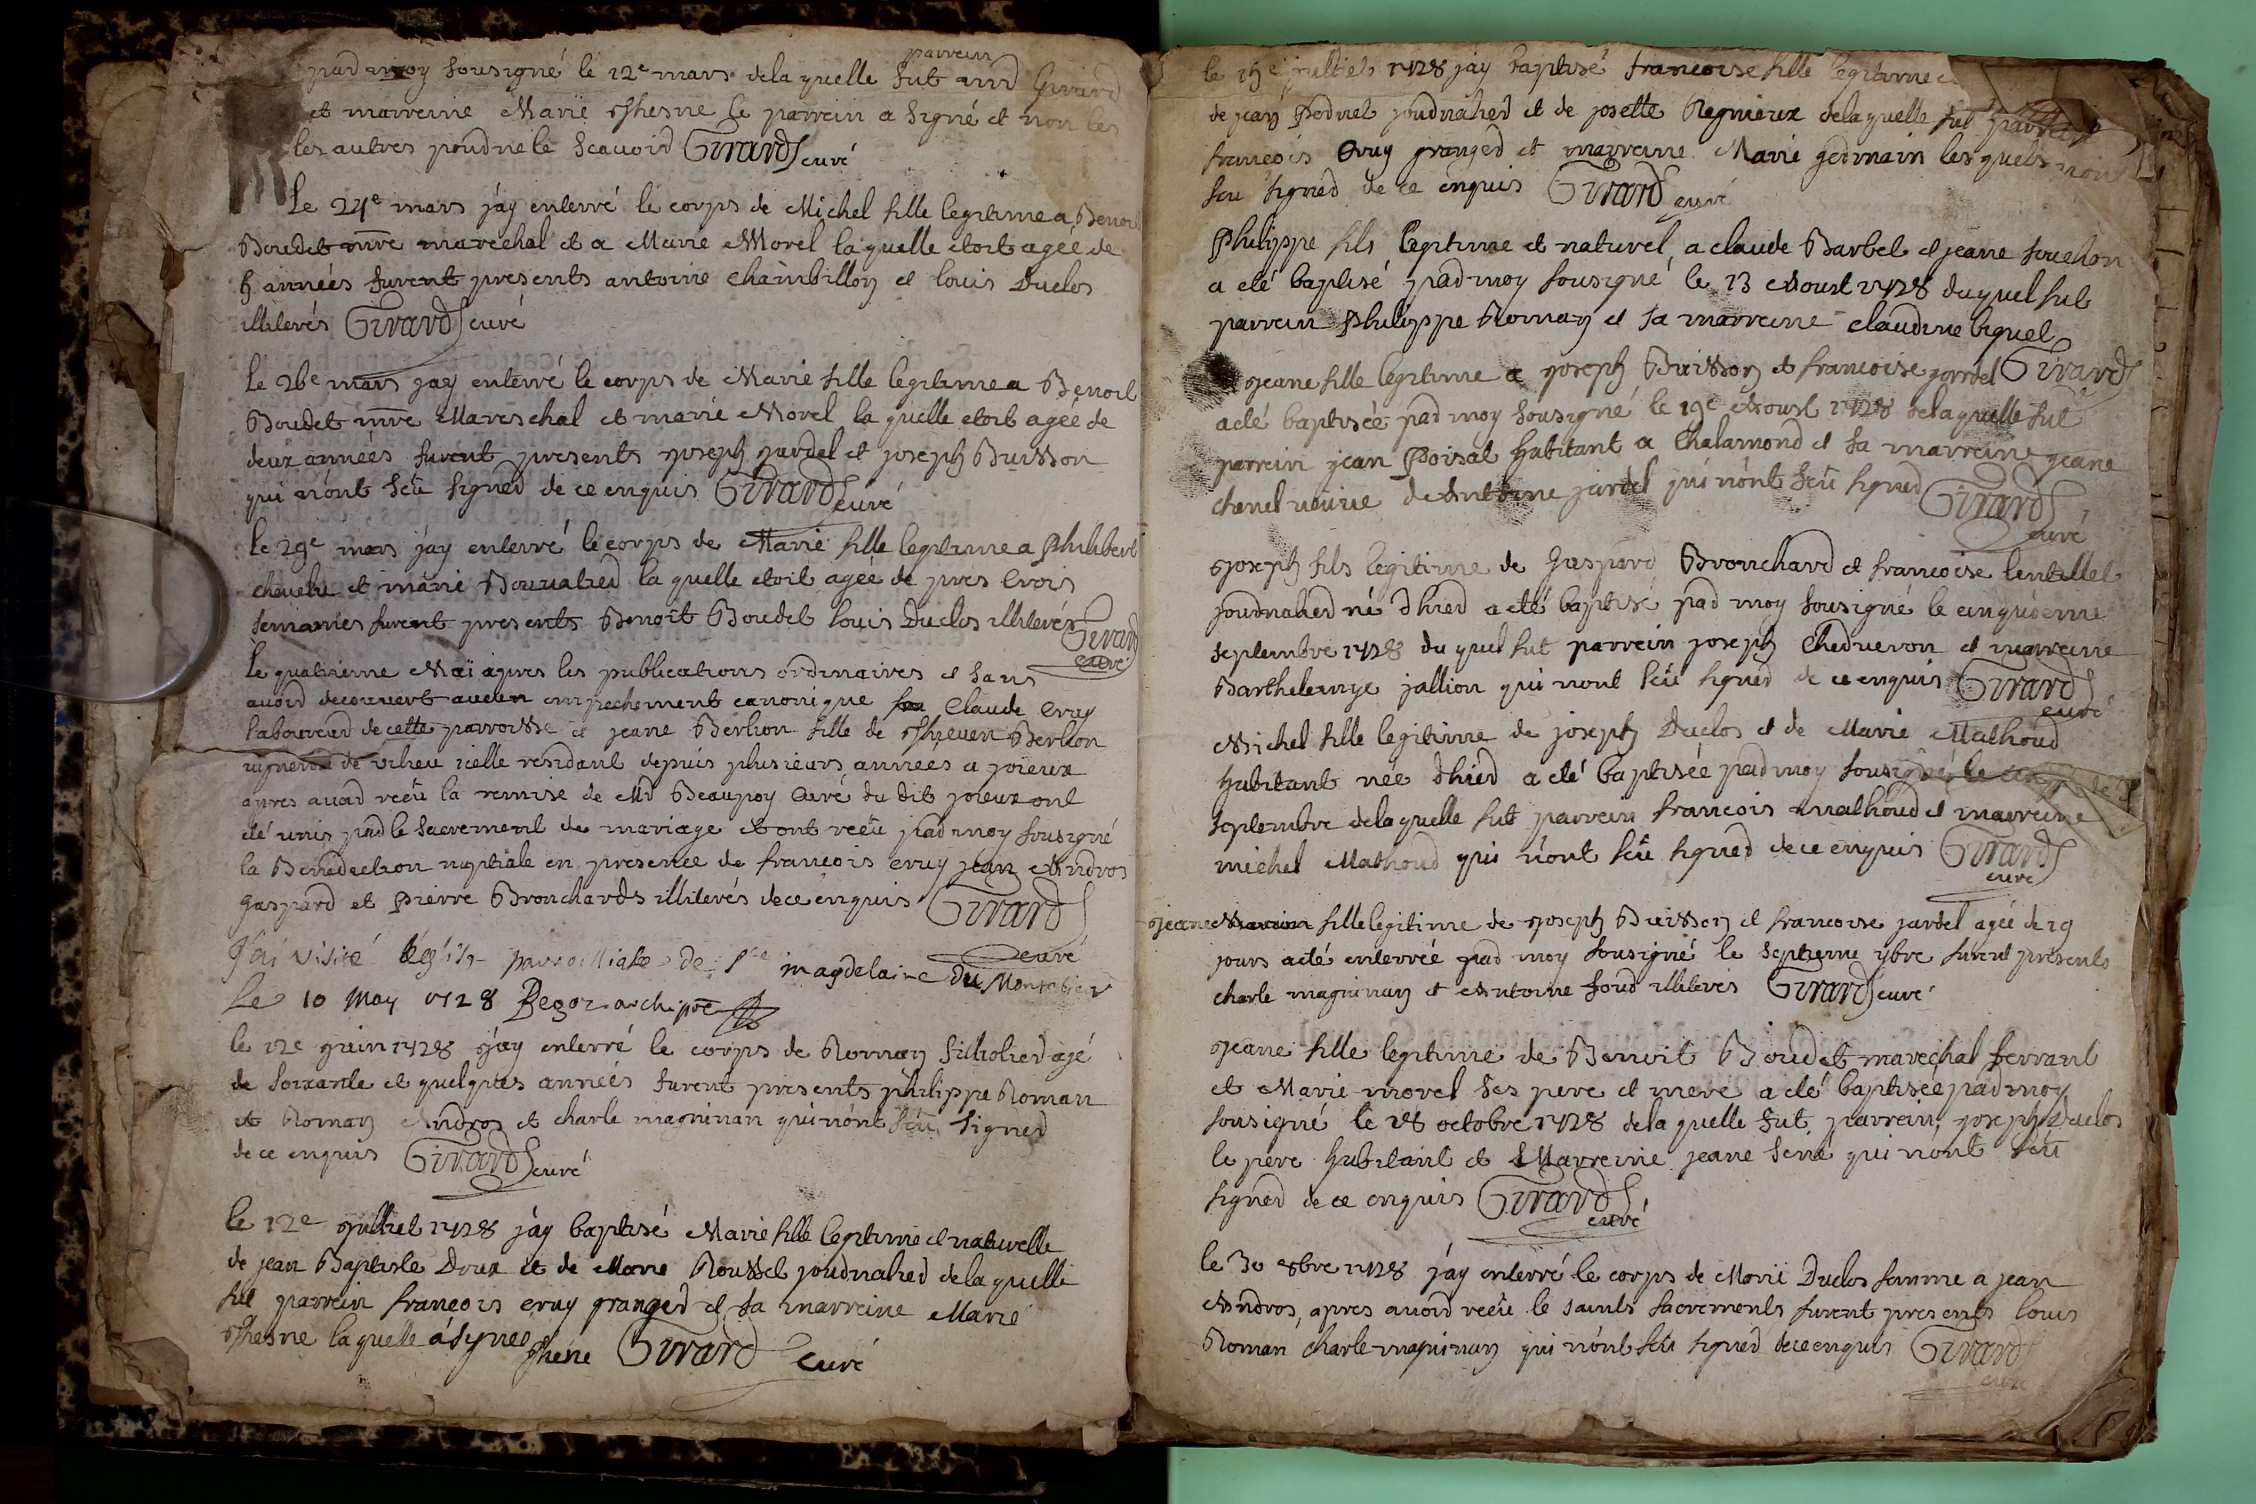 parrein
par moy sousigné le 12e mars de la quelle fut mr Girard
et marreine Marie Thesne le parrein a signé et non les
les autres pour ne le scavoir Girard curé
Le 24e mars j'ay enterré le corps de Michel fille legitime a Benoit
Boudet mre marechal et a Marie Morel la quelle etoit agée de
5 années furent presents antoine Chambillon et louis Duclos
illiterés Girard curé
Le 26e mars j'ay enterré le corps de Marie fille legitime a Benoit
Boudet mre Mareschal et marie Morel la quelle etoit agée de
deux années furent presents joseph jardel et joseph Buisson
qui n'ont sçu signer de ce enquis Girard curé
Le 29e mars j'ay enterré le corps de Marie fille legitime a Philibert
et marie la quelle etoit agée de pres trois
semaines furent presents Benoit Boudet louis Duclos illiterés Girard
curé
Le quatrieme Mai apres les publications ordinaires et sans
avoir decouvert aucun empechement canonique Claude Cruy
laboureur de cette parroisse et jeane Berlion fille de Berlion
vigneron de vilieu icelle residant depuis plusieurs années a joieux
apres avoir reçu la remise de Mr Beaupoy Curé du dit joieux ont
eté unis par le sacrement de mariage et ont reçu par moy sousigné
la Benediction nuptiale en presence de francois cruy jean Andros
Gaspard et Pierre Bronchards illiterés de ce enquis Girard
curé
J'ai visité l'église parroissiale de Ste magdelaine Du Montelier
Le 10 May 1728 Begoz archiprê
le 12e juin 1728 j'ay enterré le corps de Roman agé
de soixante et quelques années furent presents philippe Roman
et Roman Andros et charle magninan qui n'ont sçu signer
de ce enquis Girard curé
le 12e julliet 1728 j'ay baptisé Marie fille legitime et naturelle
de jean Baptiste Doux et de Marie Roussel journalier de la quelle
fut parrein francois cruy granger et sa marreine Marie
Thesne la quelle a sygné Thene Girard curé
le 19e julliet 1728 j'ay baptisé francoise fille legitime
de jean journalier et de josette Regnieux de la quelle fut parrein
francois Cruy granger et marreine Marie germain les quels n'ont
sçu signer de ce enquis Girard curé
Philippe fils legitime et naturel a claude Barbet et jeane souchon
a eté baptisé par moy sousigné le 13 Aoust 1728 du quel fut
parrein Philippe Roman et sa marreine claudine biguel
Girard
jeane fille legitime a joseph Buisson et francoise jardel
a eté baptisée par moy sousigné le 19e Aoust 1728 de la quelle fut
parrein jean Poisat habitant a Chalamond et sa marreine jeane
chanel veuve de Antoine jardel qui n'ont sçu signer Girard
curé
joseph fils legitime de Gaspard Bronchard et francoise lentillet
journalier né d'hier a eté baptisé par moy sousigné le cinquieme
septembre 1728 du quel fut parrein joseph Cherveron et marreine
Barthelemye jallion qui n'ont sçu signer de ce enquis Girard
curé
Michel fille legitime de joseph Duclos et de Marie Mathoud
habitant née d'hier a eté baptisée par moy sousigné le
septembre de la quelle fut parrein francois mathoud et marreine
michel Mathoud qui n'ont sçu signer de ce enquis Girard
curé
jeane Marion fille legitime de joseph Buisson et francoise jardel agée de 19
jours a eté enterrée par moy sousigné le septieme 7bre furent presents
charle magninan et Antoine four illiterés Girard curé
jeane fille legitime de Benoit Boudet marechal ferrant
et Marie morel ses pere et mere a eté baptisée par moy
sousigné le 18 octobre 1728 de la quelle fut parrein joseph Duclos
le pere habitant et Marreine jeane qui n'ont sçu
signer de ce enquis Girard
curé
le 30 8bre 1728 j'ay enterré le corps de Marie Duclos femme a jean
Andros, apres avoir reçu le saints sacrements furent presents louis
Roman charle magninan qui n'ont sçu signer de ce enquis Girard
curé